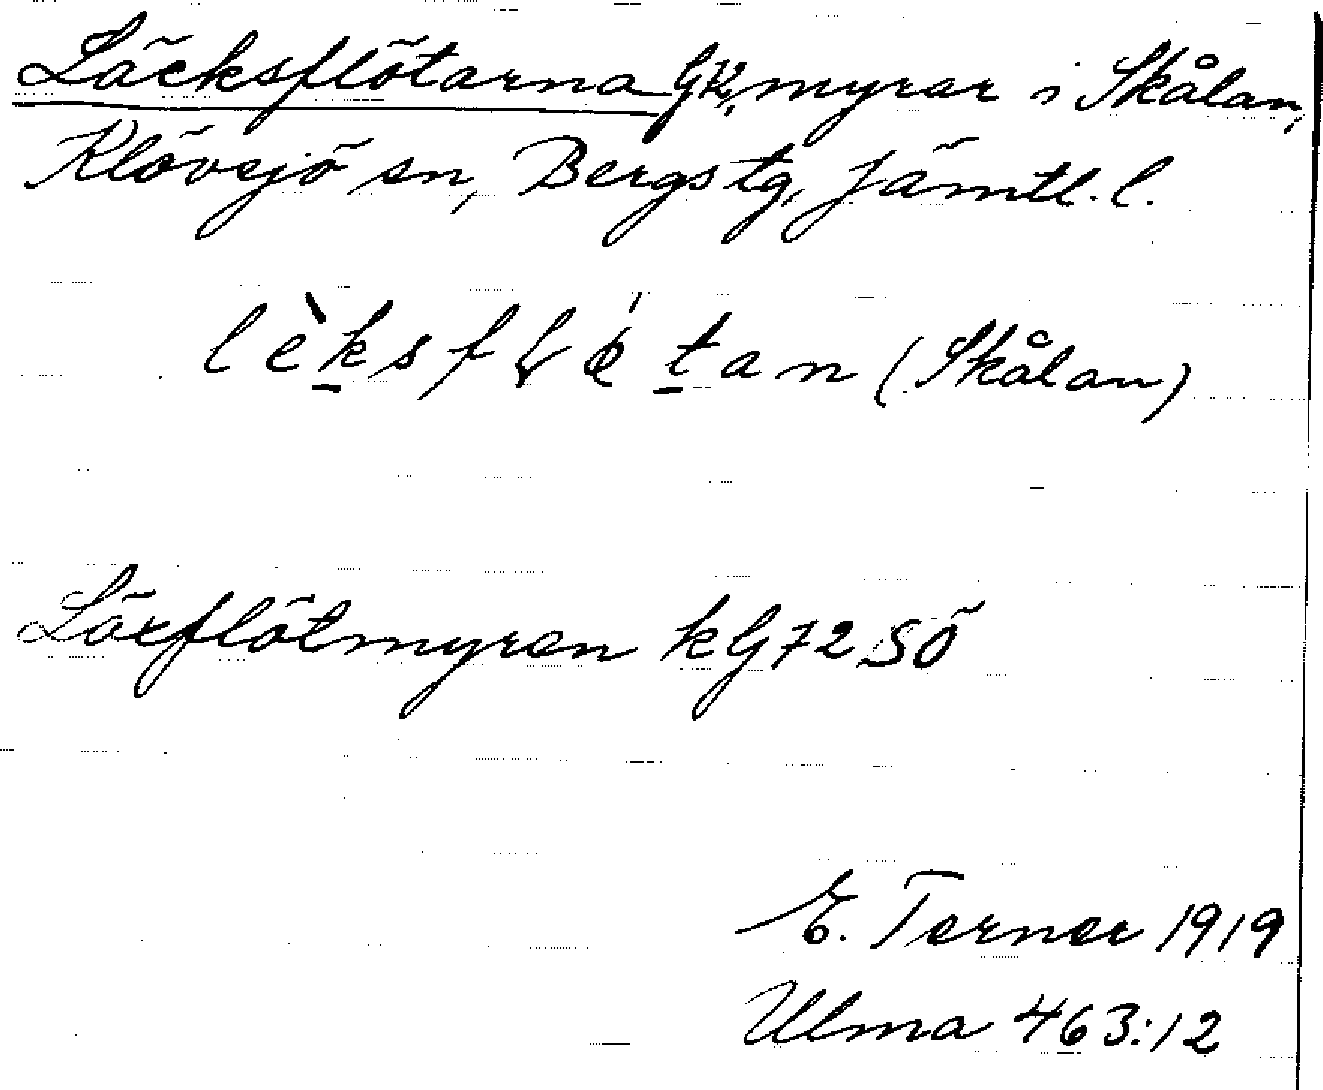 Läcksflötarna GK, myrar i Skålan,
Klövsjö sn, Bergs tg, Jämtl. l.
(Skålan)
Läxflötmyren kG72SÖ
E. Terner 1919
Ulma 463:12